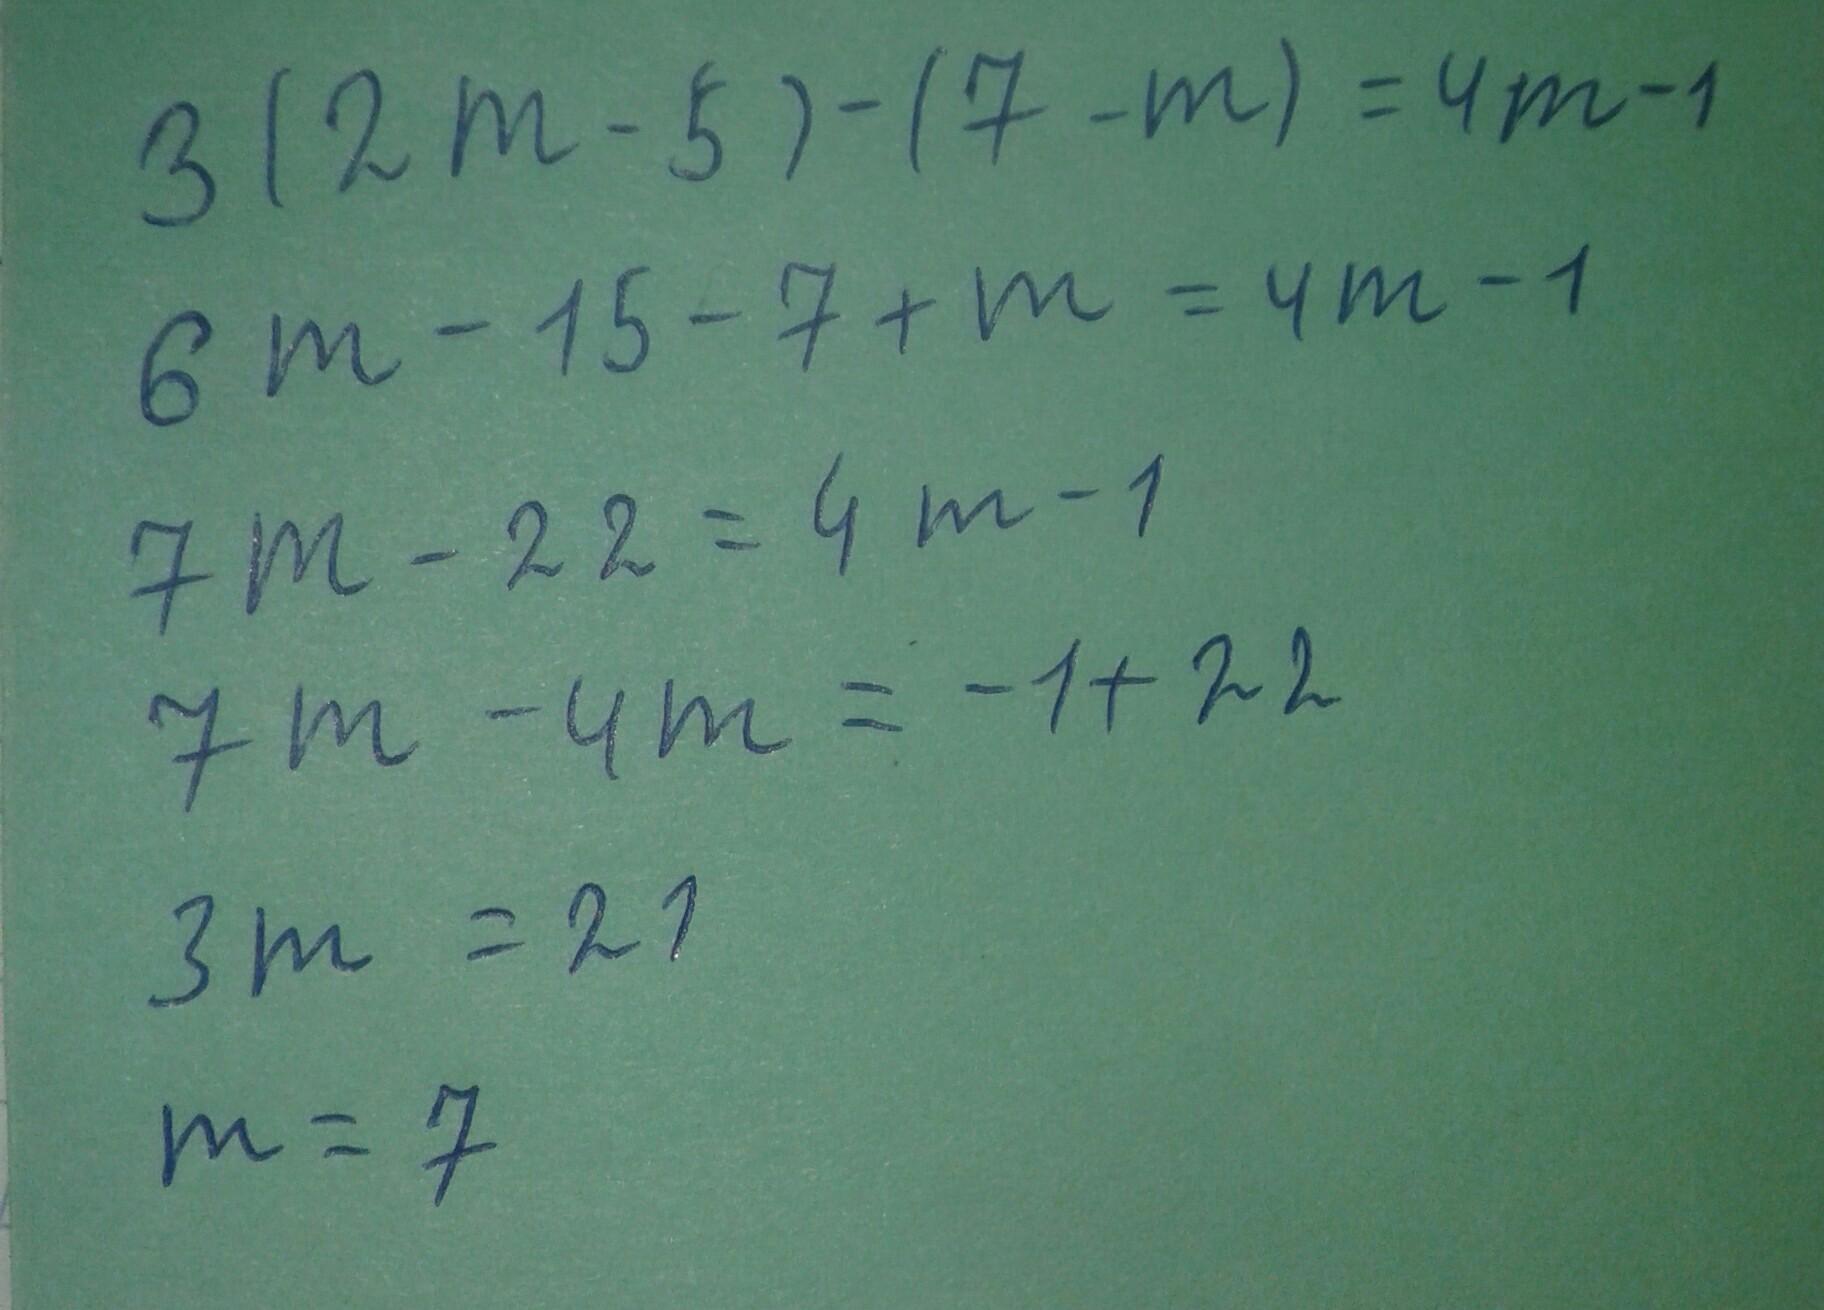 3(2m-5)-(7-m)=4m-1
6m-15-7+m=4m-1
7m-22=4m-1
7m-4m=-1+22
3m=21
m=7